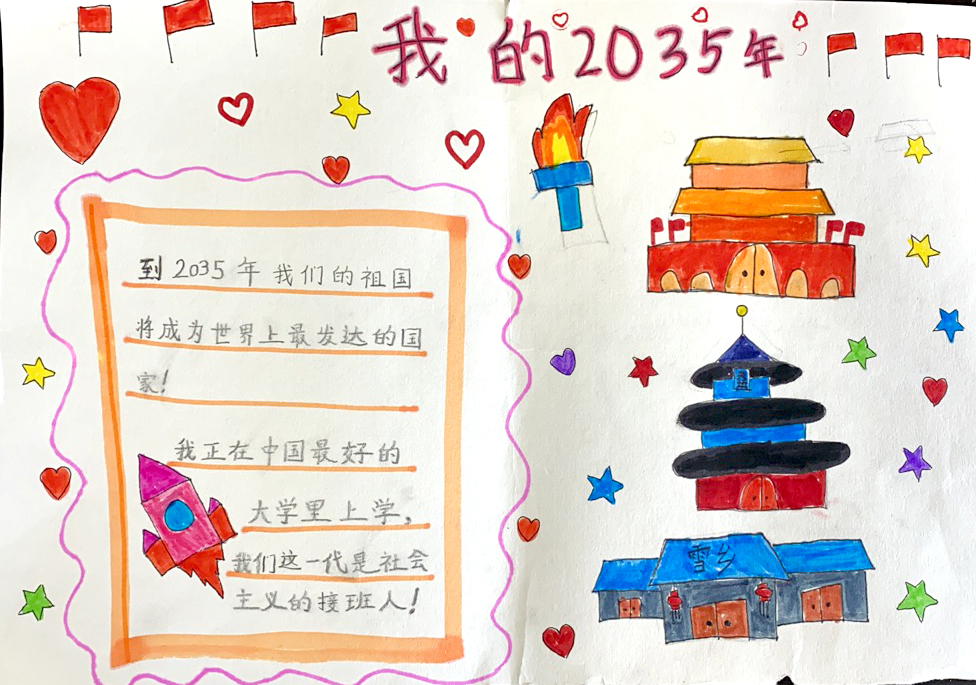 我的2035年
到2035年我们的祖国
将成为世界上最发达的国
家!
我正在中国最好的
大学里上学,
我们这一代是社会
主义的接班人!
雪乡